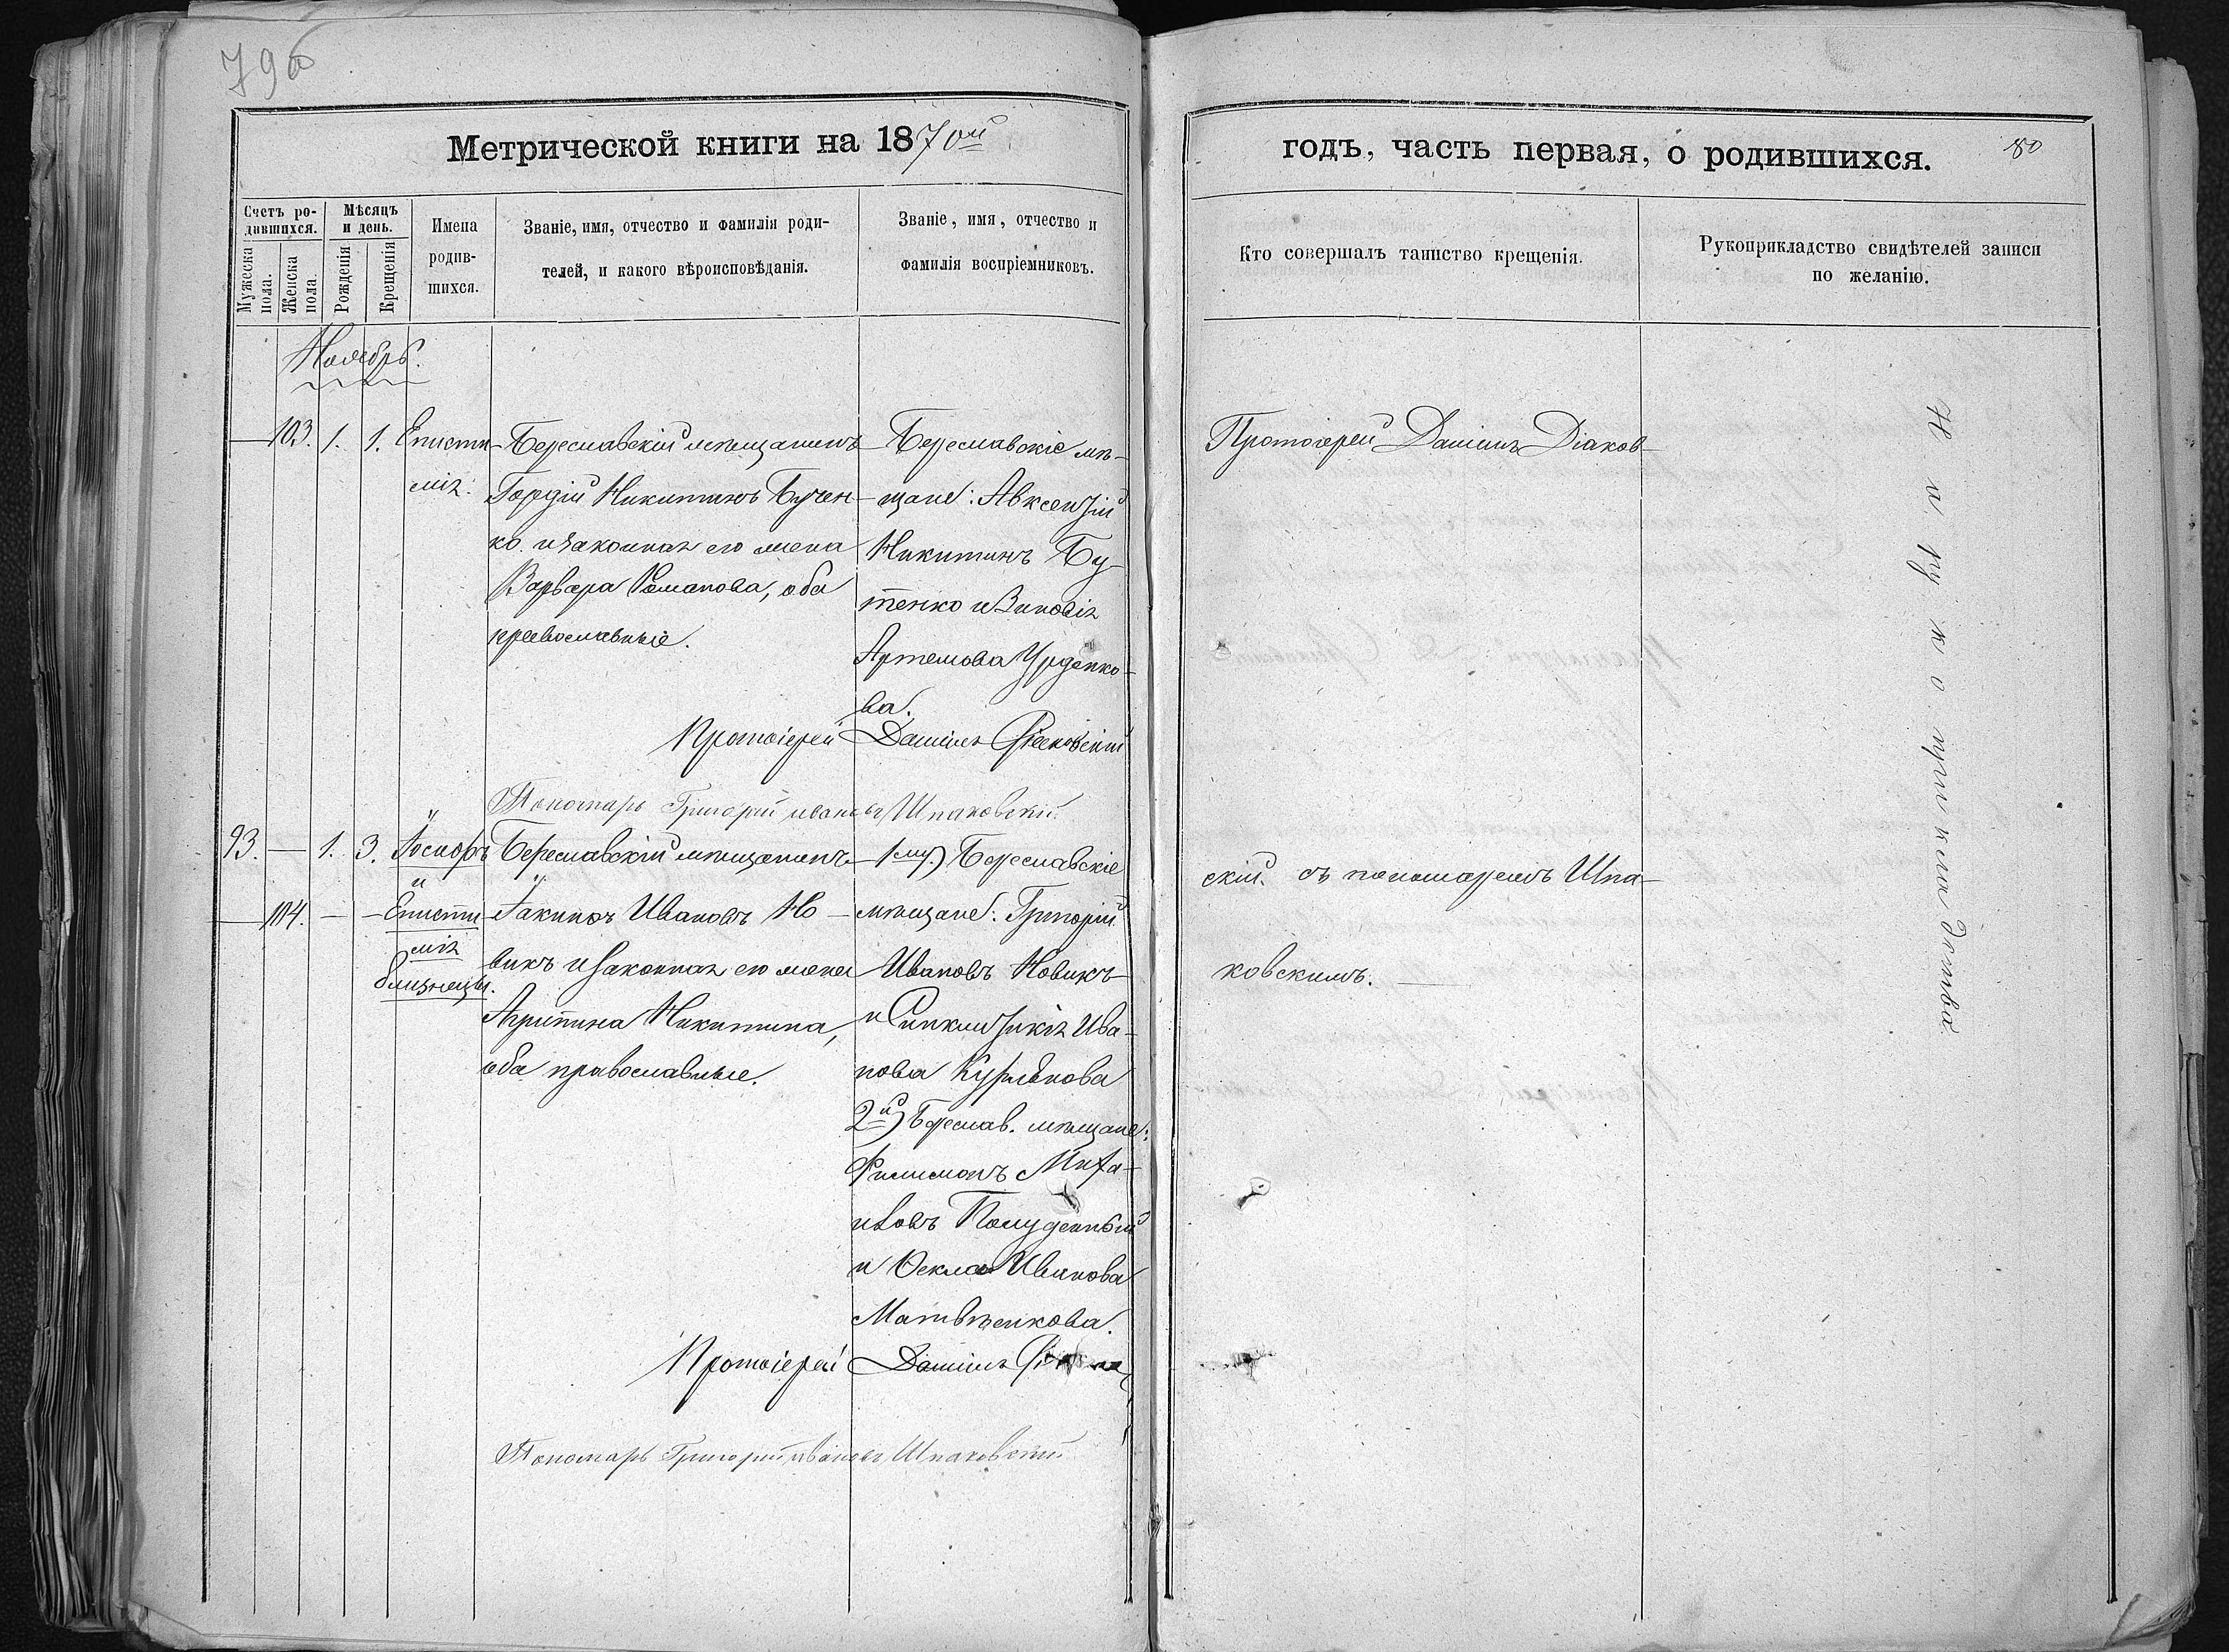 79об
Метрической книги на 1870ый
годъ, часть первая, о родившихся.
80
Счетъ родившихся.
Мужеска пола.
Женска пола.
Мѣсяцъ и день.
Рожденія
Крещенія
Имена родившихся.
Званіе, имя, отчество и фамилія роди-
телей, и какого вѣроисповѣданія.
Званіе, имя, отчество и
фамилія воспріемниковъ.
Кто совершалъ таинство крещенія.
Рукоприкладство свидѣтелей записи
по желанію.
Ноябрь.
103. 1. 1. Еписти-
мія.
Береславскій мѣщанинъ
Гордій Никитинъ Бутен-
ко и законная его жена
Варвара Романова, оба
православные.
Береславскіе мѣ-
щане: Авксентій
Никитинъ Бу-
тенко и Зиновія
Артемова Урденко-
ва.
Протоіерей Даніилъ Діаковскій
Пономарь Григорій Ивановъ Шпаковскій
93. — 1. 3. Іосифъ
и
104. — — Еписти-
мія
близнецы.
Береславскій мѣщанинъ
Іакинъ Ивановъ Но-
викъ и законная его жена
Агрипина Никитина,
оба православные.
1му) Береславскіе
мѣщане: Григорій
Ивановъ Новикъ
и Синклитикія Ива-
нова
2й) Береслав. мѣщане:
Филимонъ Миха-
иловъ Полуденный
и Ѳекла Иванова
Матвѣенкова.
Протоіерей Даніилъ
Пономарь Григорій Ивановъ Шпаковскій
Протоіерей Даніилъ Діаков-
скій съ пономаремъ Шпа-
ковскимъ.